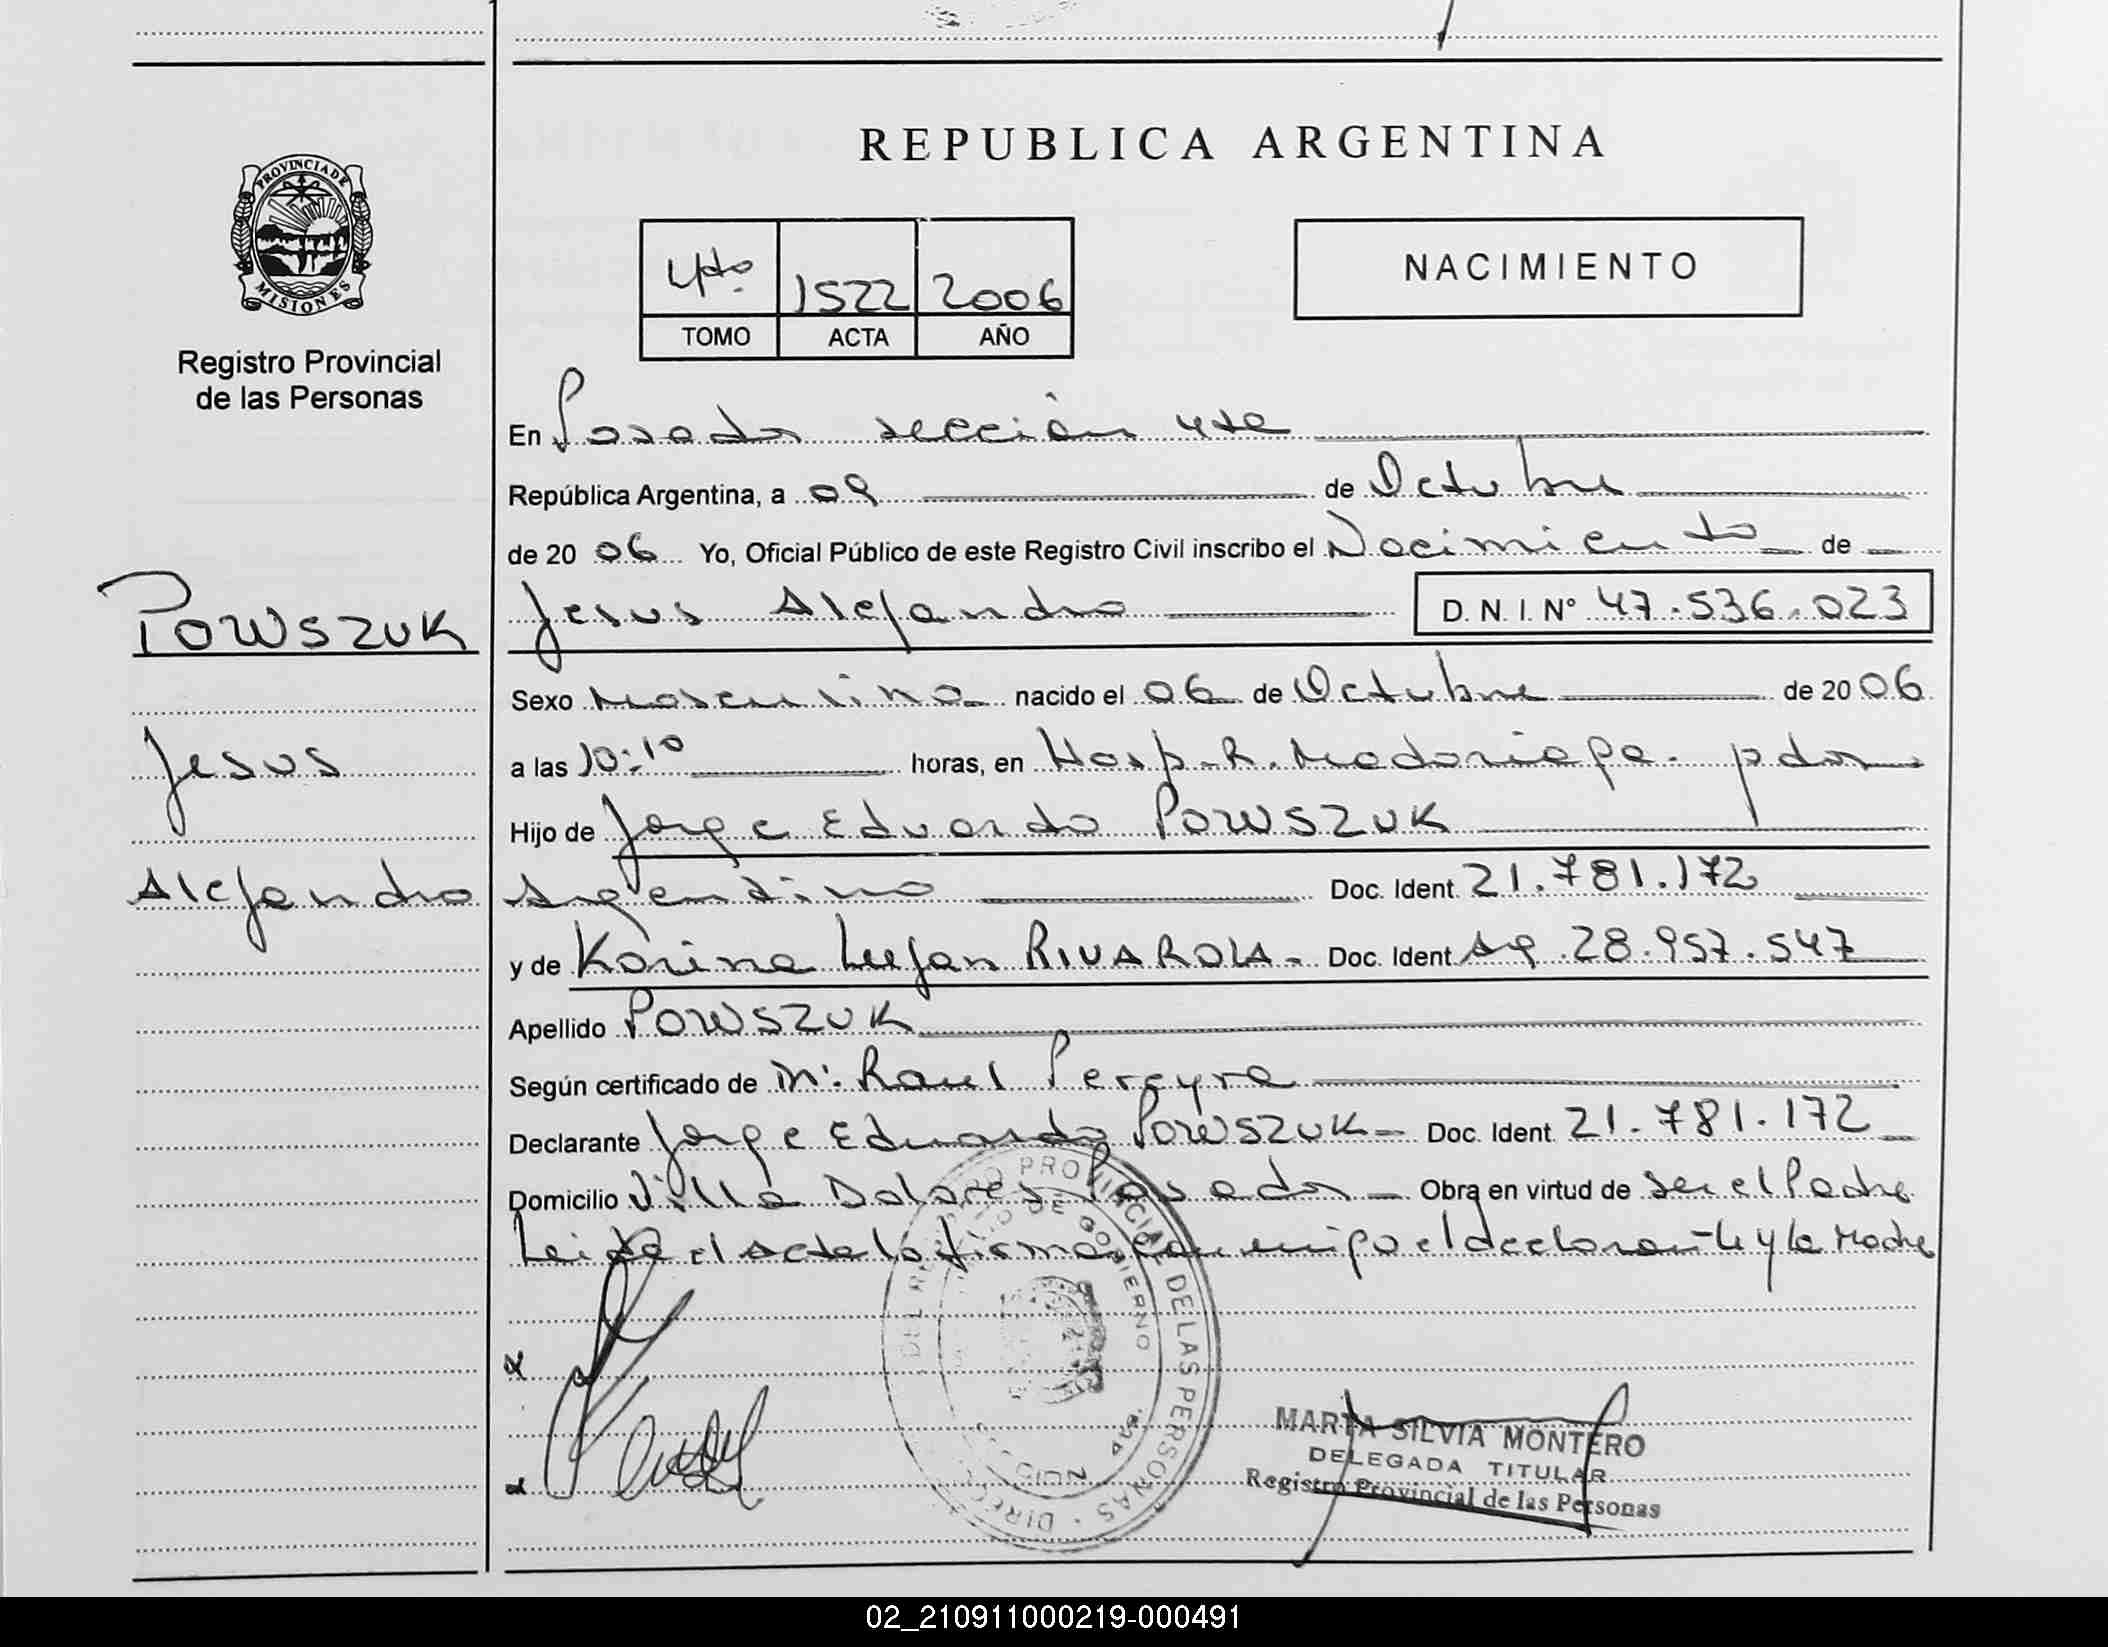 REPUBLICA ARGENTINA
PROVINCIA DE
MISIONES
Registro Provincial
de las Personas
4to. 1522 2006
TOMO ACTA AÑO
NACIMIENTO
POWSZUK
Jesus
Alejandro
En Posadas sección 4ta
República Argentina, a 09 de Octubre
de 20 06 Yo, Oficial Público de este Registro Civil inscribo el Nacimiento de
Jesus Alejandro D. N. I. N° 47.536.023
Sexo Masculino nacido el 06 de Octubre de 20 06
a las 10:10 horas, en Hosp. R. Madariaga. pdas
Hijo de Jorge Eduardo POWSZUK
Argentino Doc. Ident. 21.781.172
y de Karina Lujan RIVAROLA Doc. Ident Ag 28.957.547
Apellido POWSZUK
Según certificado de Raul Pereyra
Declarante Jorge Eduardo POWSZUK Doc. Ident. 21.781.172
Domicilio Villa Dolores Posadas Obra en virtud de ser el Padre
Leida el Acta la firman conmigo el declarante y la Madre
PROVINCIAL DE LAS PERSONAS
DE GOBIERNO
MARTA SILVIA MONTERO
DELEGADA TITULAR
Registro Provincial de las Personas
02_210911000219-000491